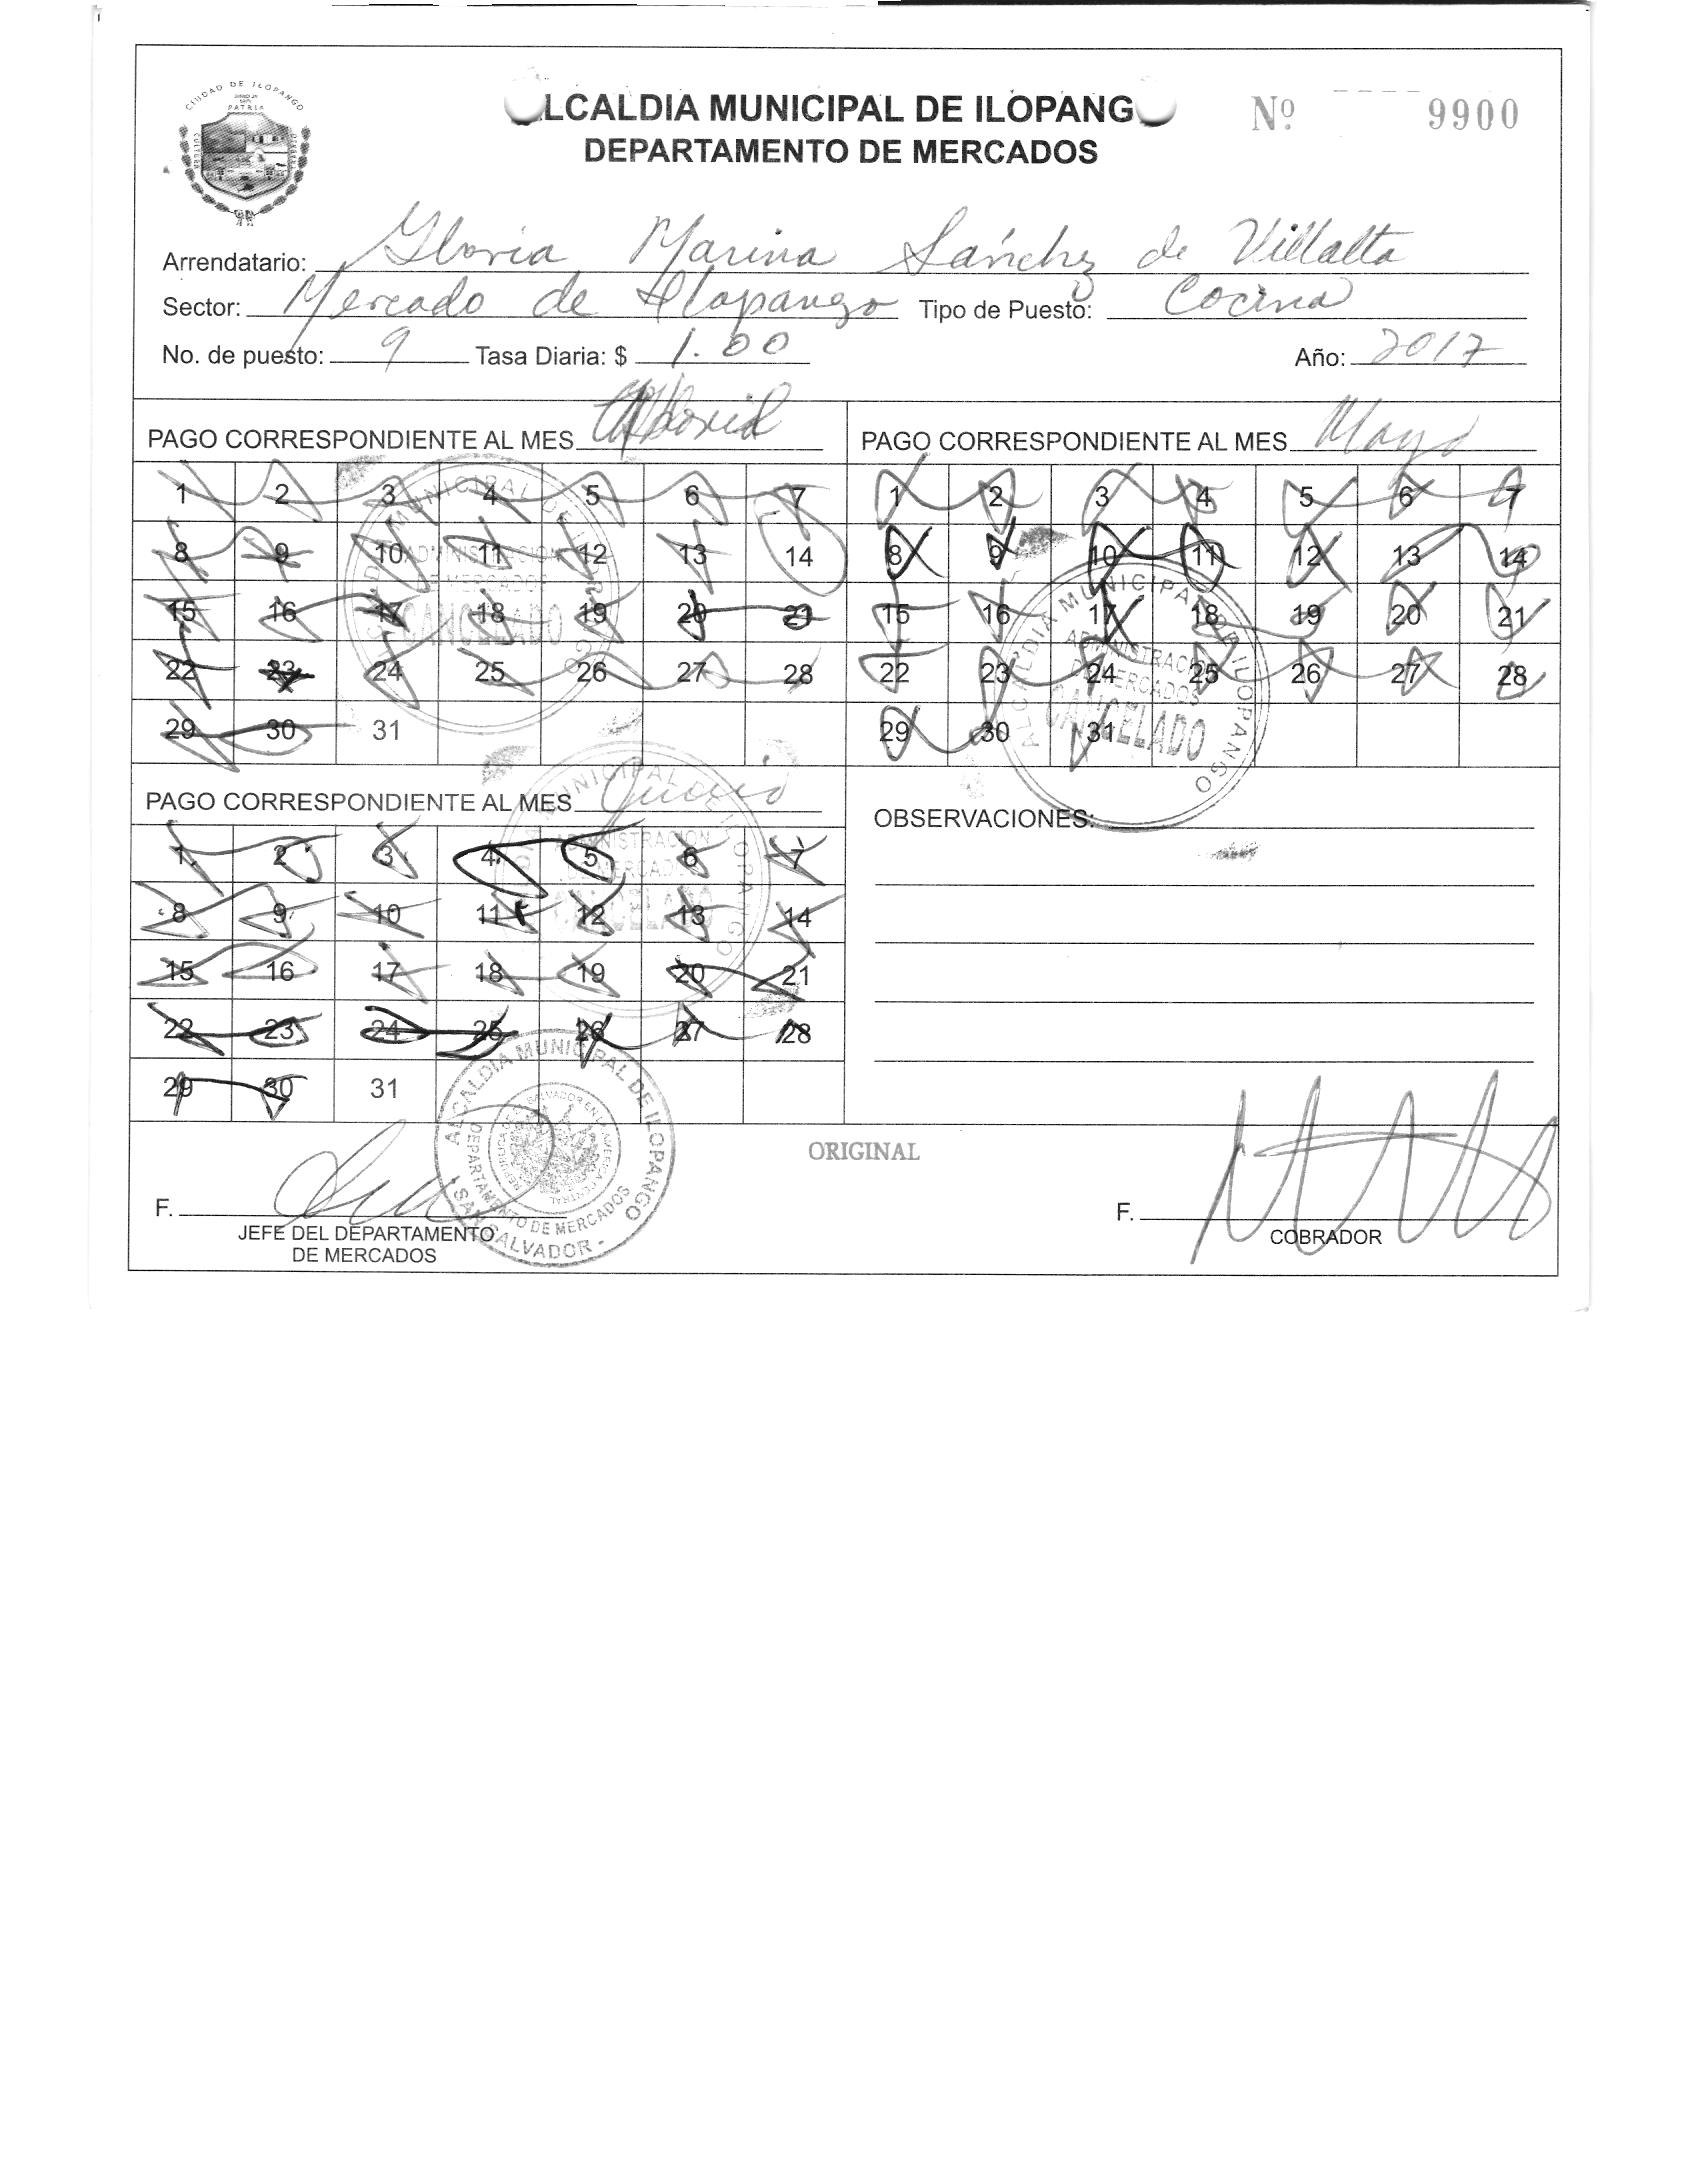 CIUDAD DE ILOPANGO
PATRIA
CULTURA
ALCALDIA MUNICIPAL DE ILOPANGO
DEPARTAMENTO DE MERCADOS
Nº 9900
Arrendatario: Gloria Marina Sánchez de Villalta
Sector: Mercado de Ilopango Tipo de Puesto: Cocina
No. de puesto: 9 Tasa Diaria: $ 1.00 Año: 2017
PAGO CORRESPONDIENTE AL MES
1 2 3 4 5 6 7
8 9 10 11 12 13 14
15 16 17 18 19 20 21
22 23 24 25 26 27 28
29 30 31
PAGO CORRESPONDIENTE AL MES Mayo
1 2 3 4 5 6 7
8 9 10 11 12 13 14
15 16 17 18 19 20 21
22 23 24 25 26 27 28
29 30 31
ALCALDIA MUNICIPAL DE ILOPANGO
ADMINISTRACION
DE MERCADOS
CANCELADO
PAGO CORRESPONDIENTE AL MES Junio
1 2 3 4 5 6 7
8 9 10 11 12 13 14
15 16 17 18 19 20 21
22 23 24 25 26 27 28
29 30 31
OBSERVACIONES:
ORIGINAL
F.
JEFE DEL DEPARTAMENTO
DE MERCADOS
ALCALDIA MUNICIPAL DE ILOPANGO
DEPARTAMENTO DE MERCADOS
SAN SALVADOR -
F.
COBRADOR